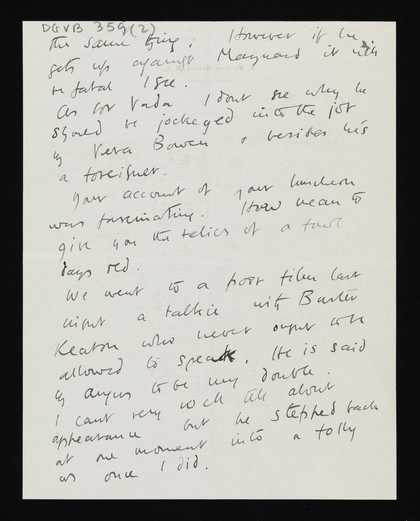 DGVB 359(2)
the same thing. However if he
gets up against Maynard it will
be fatal I see.
As for Vada I dont see why he
should be jockeyed into the job
by Vera Bowen & besides he's
a foreigner.
Your account of your luncheon
was fascinating. How mean to
give you the relics of a fowl
days old.
We went to a poor film last
night a talkie with Buster
Keaton who never ought to be
allowed to speak. He is said
by Angus to be my double.
I cant very well tell about
appearance but he stepped back
at one moment into a
as once I did.